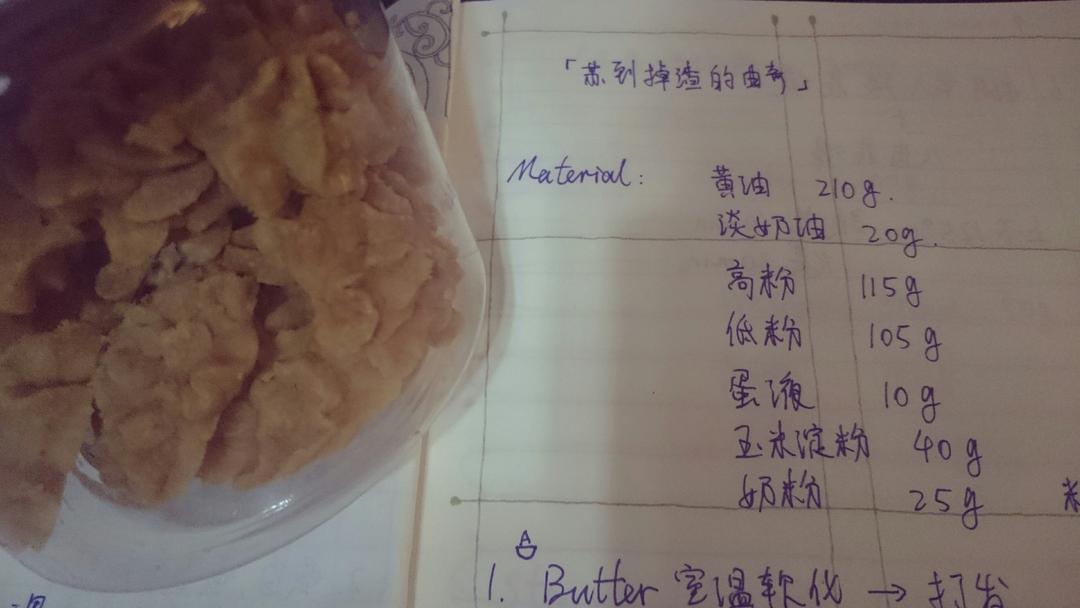 「苏到掉渣的曲奇」
Material: 黄油 210g.
淡奶油 20g.
高粉 115g
低粉 105g
蛋液 10g
玉米淀粉 40g
奶粉 25g
1. Butter 室温软化 → 打发